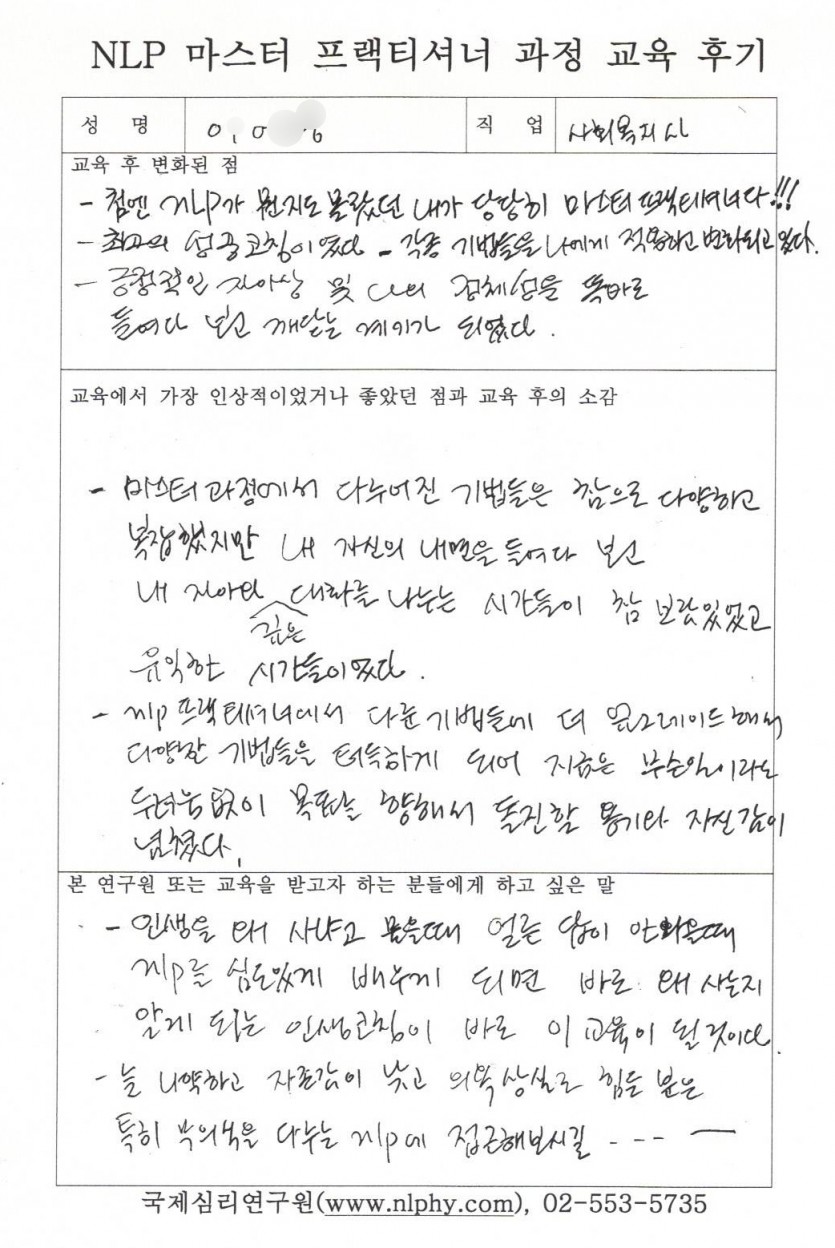 NLP 마스터 프랙티셔너 과정 교육 후기
성 명
직 업 사회복지사
교육 후 변화된 점
- 첨엔 NLP가 뭔지도 몰랐던 내가 당당히 마스터 프랙티셔너다!!!
- 최고의 성공코칭이였다 - 각종 기법들을 나에게 적용하고 변화되고 있다.
- 긍정적인 자아상 및 나의 정체성을 똑바로
들여다 보고 깨닫는 계기가 되였다.
교육에서 가장 인상적이었거나 좋았던 점과 교육 후의 소감
- 마스터과정에서 다누어진 기법들은 참으로 다양하고
복잡했지만 내 자신의 내면을 들여다 보고
내 자아와 깊은 대화를 나누는 시간들이 참 보람있었고
유익한 시간들이였다.
- nlp 프랙티셔너에서 다룬 기법들에 더 업그레이드해서
다양한 기법들을 터득하게 되어 지금은 무슨일이라도
두려움 없이 목표를 향해서 돌진할 용기와 자신감이
넘쳤다.
본 연구원 또는 교육을 받고자 하는 분들에게 하고 싶은 말
- 인생을 왜 사냐고 물을때 얼른 답이 안나올때
nlp를 심도있게 배우게 되면 바로 왜 사는지
알게 되는 인생코칭이 바로 이 교육이 될것이다.
- 늘 나약하고 자존감이 낮고 의욕상실로 힘든 분은
특히 무의식을 다누는 nlp에 접근해보시길 - - - —
국제심리연구원(www.nlphy.com), 02-553-5735